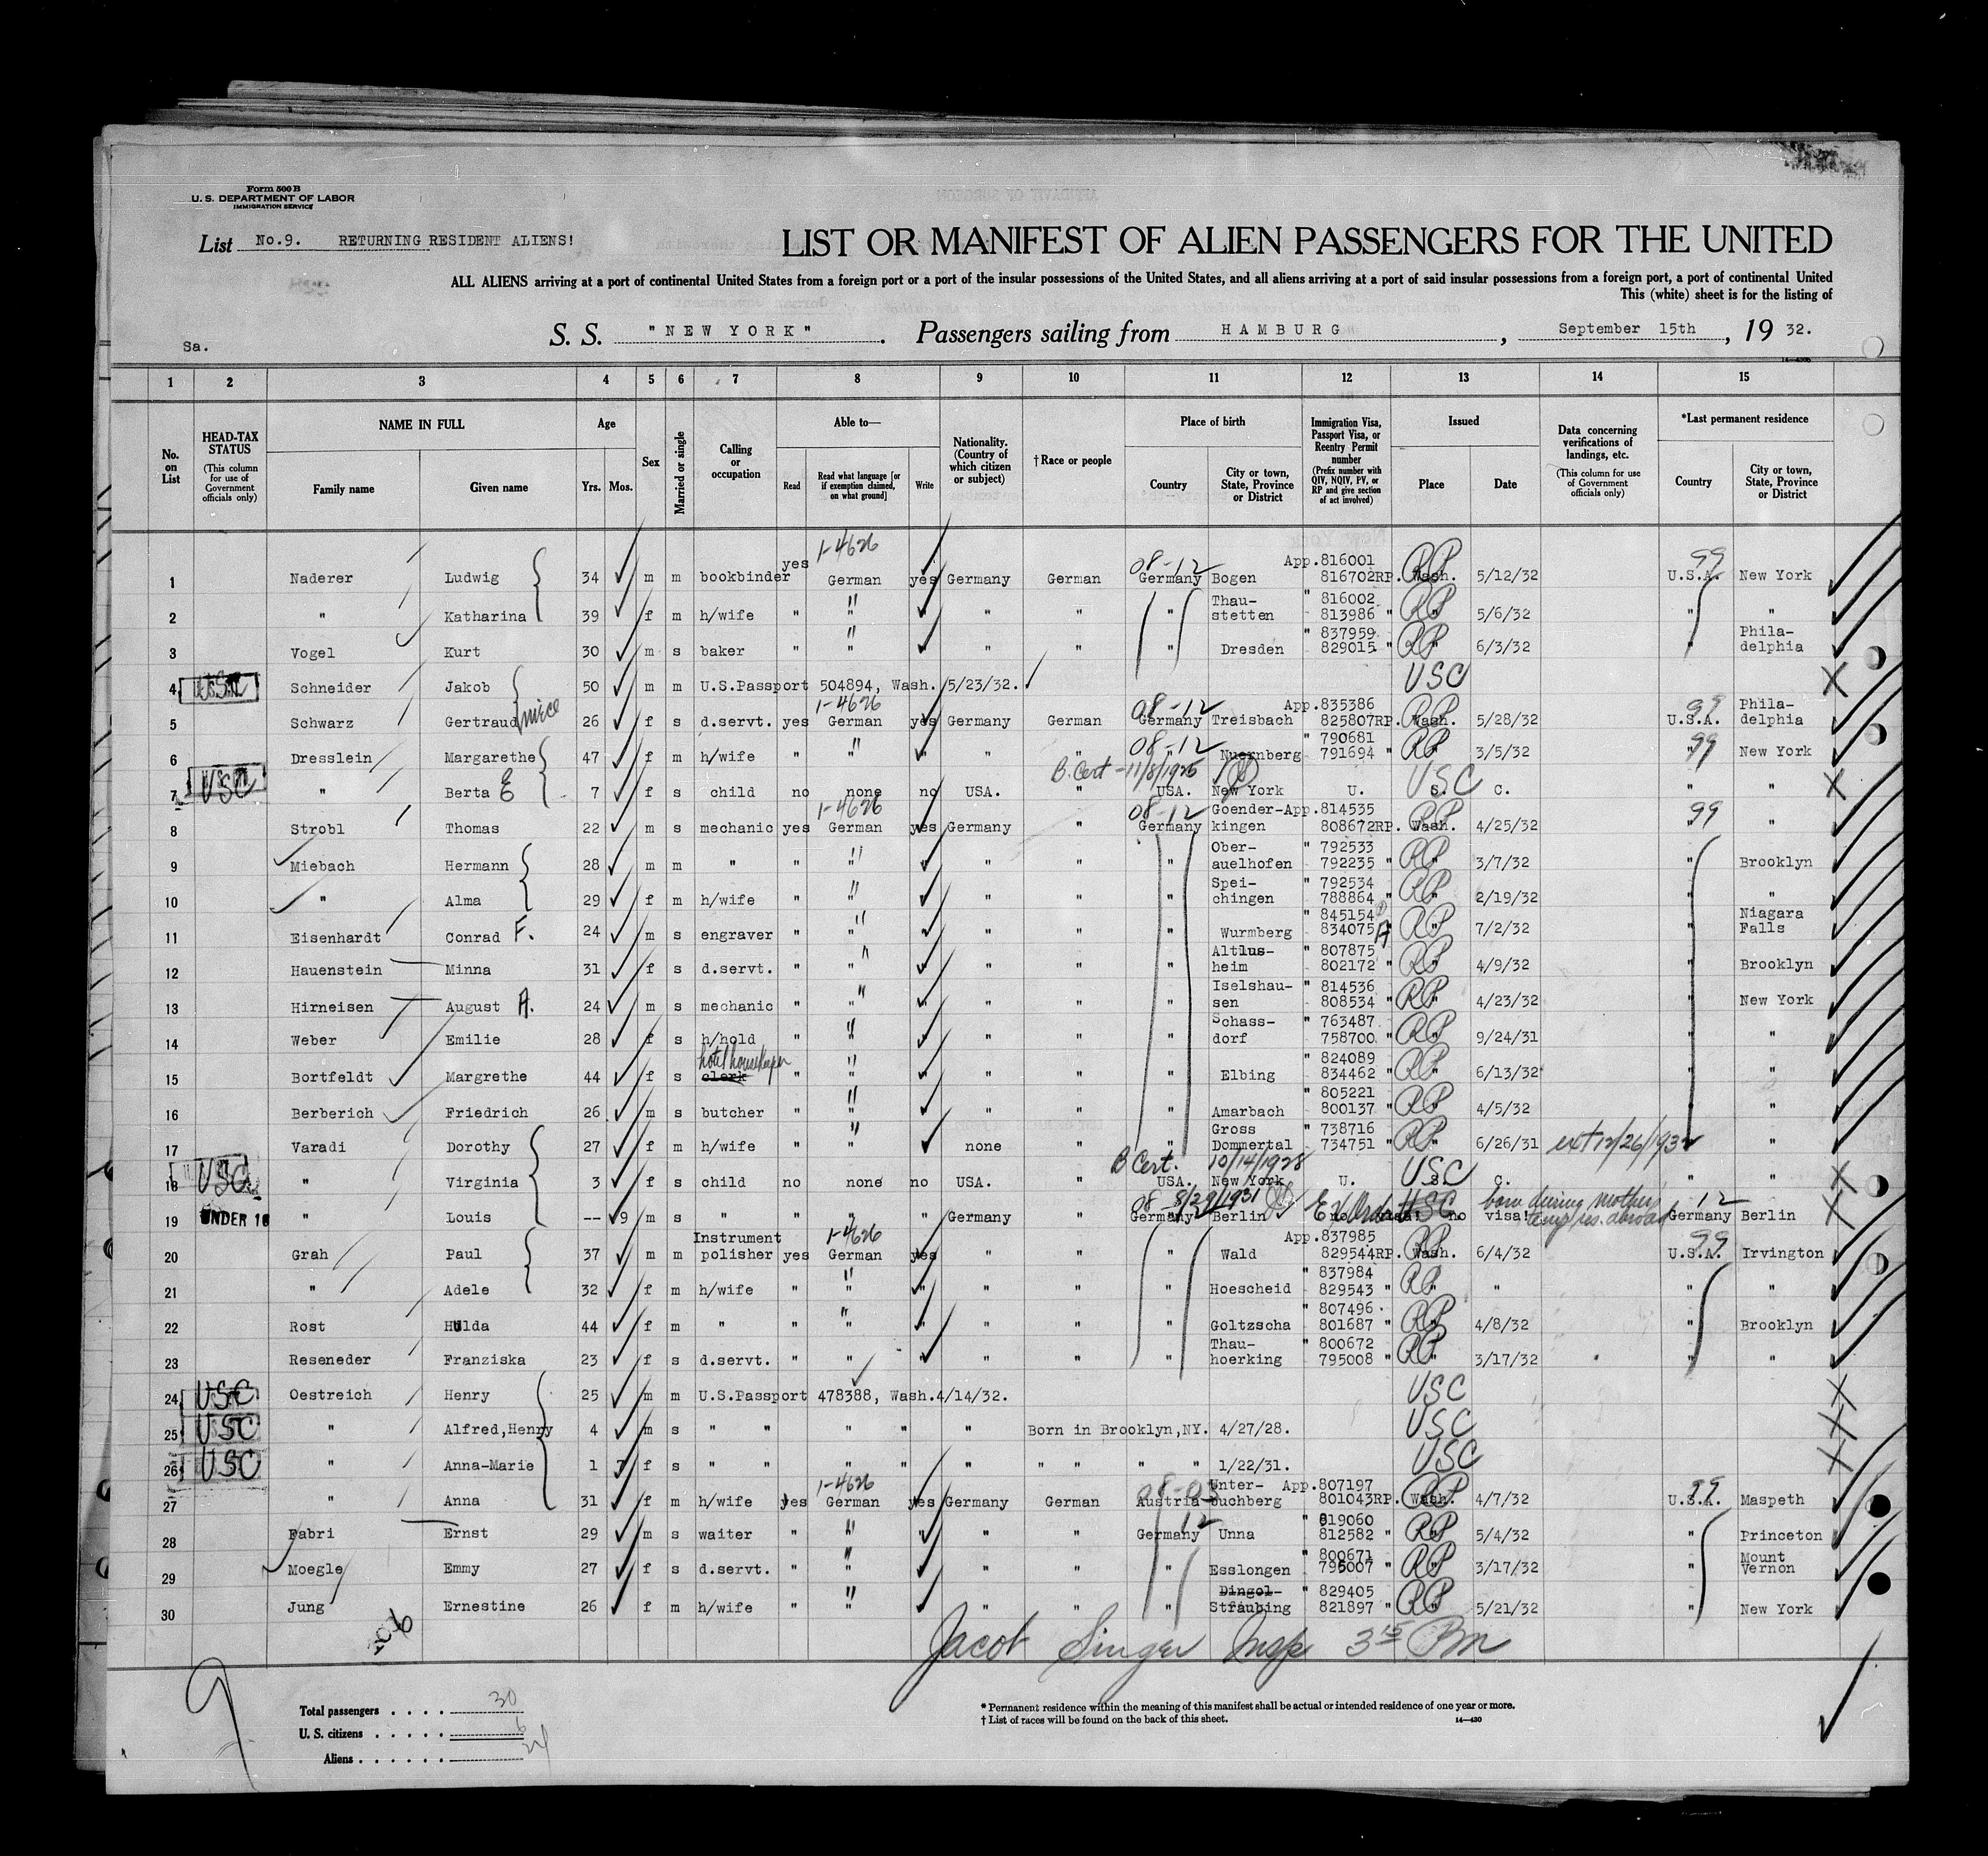 Form 500 B
U. S. DEPARTMENT OF LABOR
IMMIGRATION SERVICE
List No.9. RETURNING RESIDENT ALIENS!
LIST OR MANIFEST OF ALIEN PASSENGERS FOR THE UNITED
ALL ALIENS arriving at a port of continental United States from a foreign port or a port of the insular possessions of the United States, and all aliens arriving at a port of said insular possessions from a foreign port, a port of continental United
This (white) sheet is for the listing of
Sa.
S. S. "NEW YORK". Passengers sailing from HAMBURG, September 15th, 19 32.
1 2 3 4 5 6 7 8 9 10 11 12 13 14 15
No. on List
HEAD-TAX STATUS (This column for use of Government officials only)
NAME IN FULL
Family name
Given name
Age
Yrs. Mos.
Sex
Married or single
Calling or occupation
Able to—
Read
Read what language [or if exemption claimed, on what ground]
Write
Nationality. (Country of which citizen or subject)
†Race or people
Place of birth
Country
City or town, State, Province or District
Immigration Visa, Passport Visa, or Reentry Permit number (Prefix number with QIV, NQIV, PV, or RP and give section of act involved)
Issued
Place
Date
Data concerning verifications of landings, etc. (This column for use of Government officials only)
*Last permanent residence
Country
City or town, State, Province or District
1 Naderer Ludwig 34 m m bookbinder yes 1-4626 German yes Germany German 08-12 Germany Bogen App.816001 816702RP. Wash. RP 5/12/32 99 U.S.A. New York
2 " Katharina 39 f m h/wife " " " " " " Thau-stetten " 816002 813986 " RP " 5/6/32 " "
3 Vogel Kurt 30 m s baker " " " " " " Dresden " 837959 829015 " RP " 6/3/32 " Phila-delphia
4 USC Schneider Jakob 50 m m U.S.Passport 504894, Wash. 5/23/32. USC
5 Schwarz Gertraud niece 26 f s d.servt. yes 1-4626 German yes Germany German 08-12 Germany Treisbach App.835386 825807RP. Wash. RP 5/28/32 99 U.S.A. Phila-delphia
6 Dresslein Margarethe 47 f m h/wife " " " " " 08-12 " Nuernberg " 790681 791694 " RP " 3/5/32 99 " New York
7 USC " Berta E 7 f s child no none no USA. " B. Cert - 11/8/1925 USA. New York U. S. C. USC " "
8 Strobl Thomas 22 m s mechanic yes 1-4626 German yes Germany " 08-12 Germany Goender-kingen App.814535 808672RP. Wash. RP 4/25/32 99 " "
9 Miebach Hermann 28 m m " " " " " " " Ober-auelhofen " 792533 792235 " RP " 3/7/32 " Brooklyn
10 " Alma 29 f m h/wife " " " " " " Spei-chingen " 792534 788864 " RP " 2/19/32 " "
11 Eisenhardt Conrad F. 24 m s engraver " " " " " " Wurmberg " 845154 834075 A RP " 7/2/32 " Niagara Falls
12 Hauenstein Minna 31 f s d.servt. " " " " " " Altlus-heim " 807875 802172 " RP " 4/9/32 " Brooklyn
13 Hirneisen August A. 24 m s mechanic " " " " " " Iselshau-sen " 814536 808534 " RP " 4/23/32 " New York
14 Weber Emilie 28 f s h/hold " " " " " " Schass-dorf " 763487 758700 " RP " 9/24/31 " "
15 Bortfeldt Margrethe 44 f s clerk hotel housekeeper " " " " " " Elbing " 824089 834462 " RP " 6/13/32 " "
16 Berberich Friedrich 26 m s butcher " " " " " " Amarbach " 805221 800137 " RP " 4/5/32 " "
17 Varadi Dorothy 27 f m h/wife " " " none " " Gross Dommertal " 738716 734751 " RP " 6/26/31 ext 12/26/1932 " "
18 USC " Virginia 3 f s child no none no USA. " B Cert. 10/14/1928 USA. New York U. S. C. USC " "
19 UNDER 16 " Louis -- 9 m s " " " " Germany " 08 8/29/1931 Germany Berlin no visa! no visa! born during mothers temp res. abroad 12 Germany Berlin
20 Grah Paul 37 m m Instrument polisher yes 1-4626 German yes " " " Wald App.837985 829544RP. Wash. RP 6/4/32 99 U.S.A. Irvington
21 " Adele 32 f m h/wife " " " " " " Hoescheid " 837984 829543 " RP " " " "
22 Rost Hulda 44 f m " " " " " " " Goltzscha " 807496 801687 " RP " 4/8/32 " Brooklyn
23 Reseneder Franziska 23 f s d.servt. " " " " " " Thau-hoerking " 800672 795008 " RP " 3/17/32 " "
24 USC Oestreich Henry 25 m m U.S.Passport 478388, Wash.4/14/32. USC
25 USC " Alfred,Henry 4 m s " " " " " Born in Brooklyn,NY. 4/27/28. USC
26 USC " Anna-Marie 1 7 f s " " " " " " " " " 1/22/31. USC
27 " Anna 31 f m h/wife yes 1-4626 German yes Germany German 08-03 Austria Unter-buchberg App.807197 801043RP. Wash. RP 4/7/32 99 U.S.A. Maspeth
28 Fabri Ernst 29 m s waiter " " " " " 12 Germany Unna " 819060 812582 " RP " 5/4/32 " Princeton
29 Moegle Emmy 27 f s d.servt. " " " " " " Esslongen " 800671 795007 " RP " 3/17/32 " Mount Vernon
30 Jung Ernestine 26 f m h/wife " " " " " " Dingol- Straubing " 829405 821897 " RP " 5/21/32 " New York
Jacob Singer Insp 3 15 Pm
9
Total passengers . . . . 30
U. S. citizens . . . . . 6
Aliens . . . . . . 24
* Permanent residence within the meaning of this manifest shall be actual or intended residence of one year or more.
† List of races will be found on the back of this sheet.
14—430